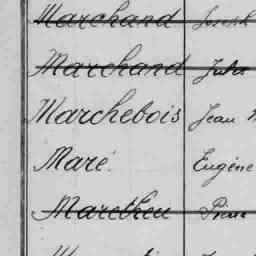 Marchand Joseph
Marchand Jules
Marchebois Jean
Maré Eugène
Maretheu Pierre